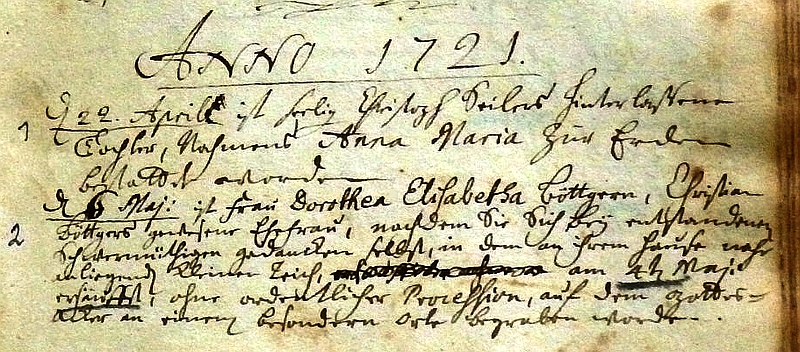 ANNO 1721.
1 d 22. Aprill ist seelig Christoph Seilers hinterlassene
Tochter, Nahmens Anna Maria zur Erden
bestattet worden
2 d 6 Maji ist Frau Dorothea Elisabetha Böttgern, Christian
Böttgers gewesene Ehefrau, nachdem Sie Sich bey entstandenen
Schwermüthigen gedancken selbst, in dem an ihrem Hause nahe
anliegend kleinen Teich, am 4t Maji
ersäufft, ohne ordentlicher Procession, auf dem Gottes=
acker an einem besondern Orte begraben worden.